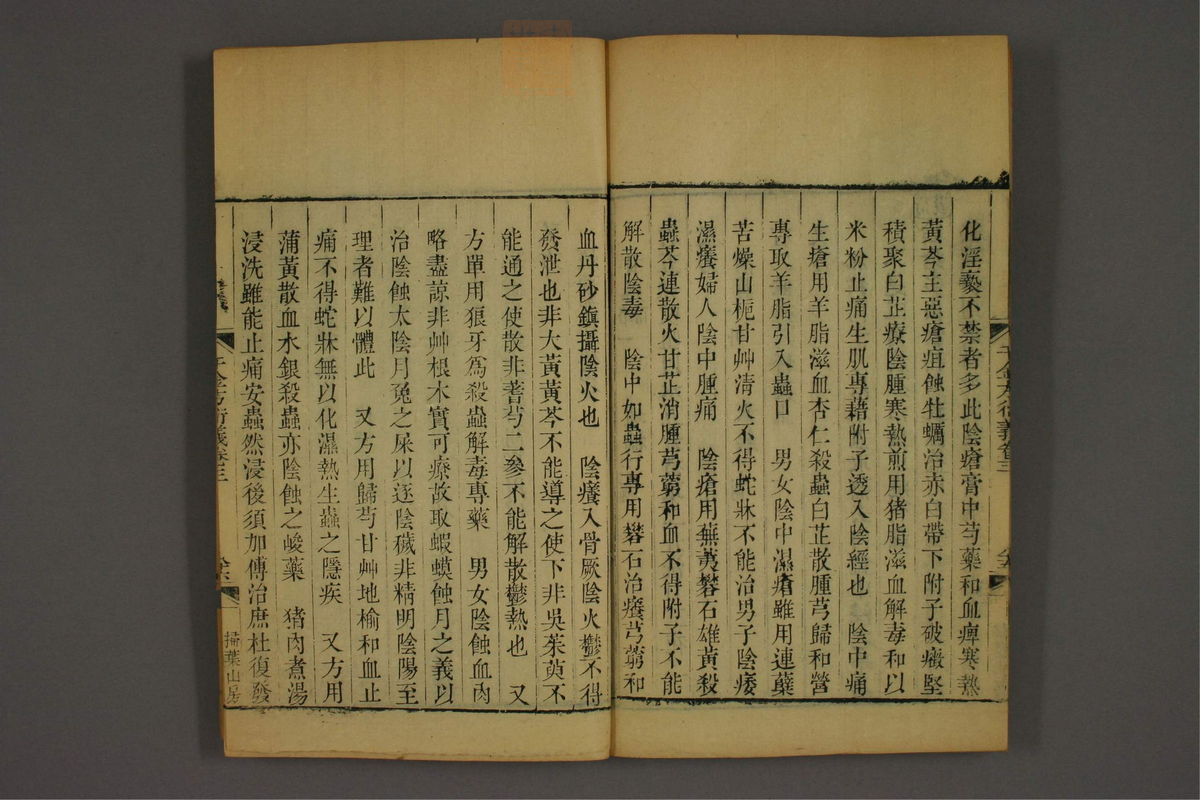 化淫褻不禁者多此陰瘡膏中芍藥和血痺寒熱
黃芩主惡瘡疽蝕牡蠣治赤白帶下附子破癥堅
積聚白芷療陰腫寒熱煎用猪脂滋血解毒和以
米粉止痛生肌專藉附子透入陰經也　陰中痛
生瘡用羊脂滋血杏仁殺蟲白芷散腫芎歸和營
專取羊脂引入蟲口　男女陰中濕瘡雖用連蘗
苦燥山栀甘艸清火不得蛇牀不能治男子陰痿
濕癢婦人陰中腫痛　陰瘡用蕪荑礬石雄黃殺
蟲芩連散火甘芷消腫芎藭和血不得附子不能
解散陰毒　陰中如蟲行專用礬石治癢芎藭和
千金方衍義卷三
血丹砂鎭攝陰火也　陰癢入骨厥陰火鬱不得
發泄也非大黃黃芩不能導之使下非吳茱萸不
能通之使散非蓍芍二參不能解散鬱熱也　又
方單用狼牙爲殺蟲解毒專藥　男女陰蝕血肉
略盡諒非艸根木實可療故取蝦蟆蝕月之義以
治陰蝕太陰月兔之屎以逐陰穢非精明陰陽至
理者難以體此　又方用歸芍甘艸地榆和血止
痛不得蛇牀無以化濕熱生蟲之隱疾　又方用
蒲黃散血水銀殺蟲亦陰蝕之峻藥　猪肉煮湯
浸洗雖能止痛安蟲然浸後須加傅治庶杜復發
千金方衍義卷三
掃葉山房